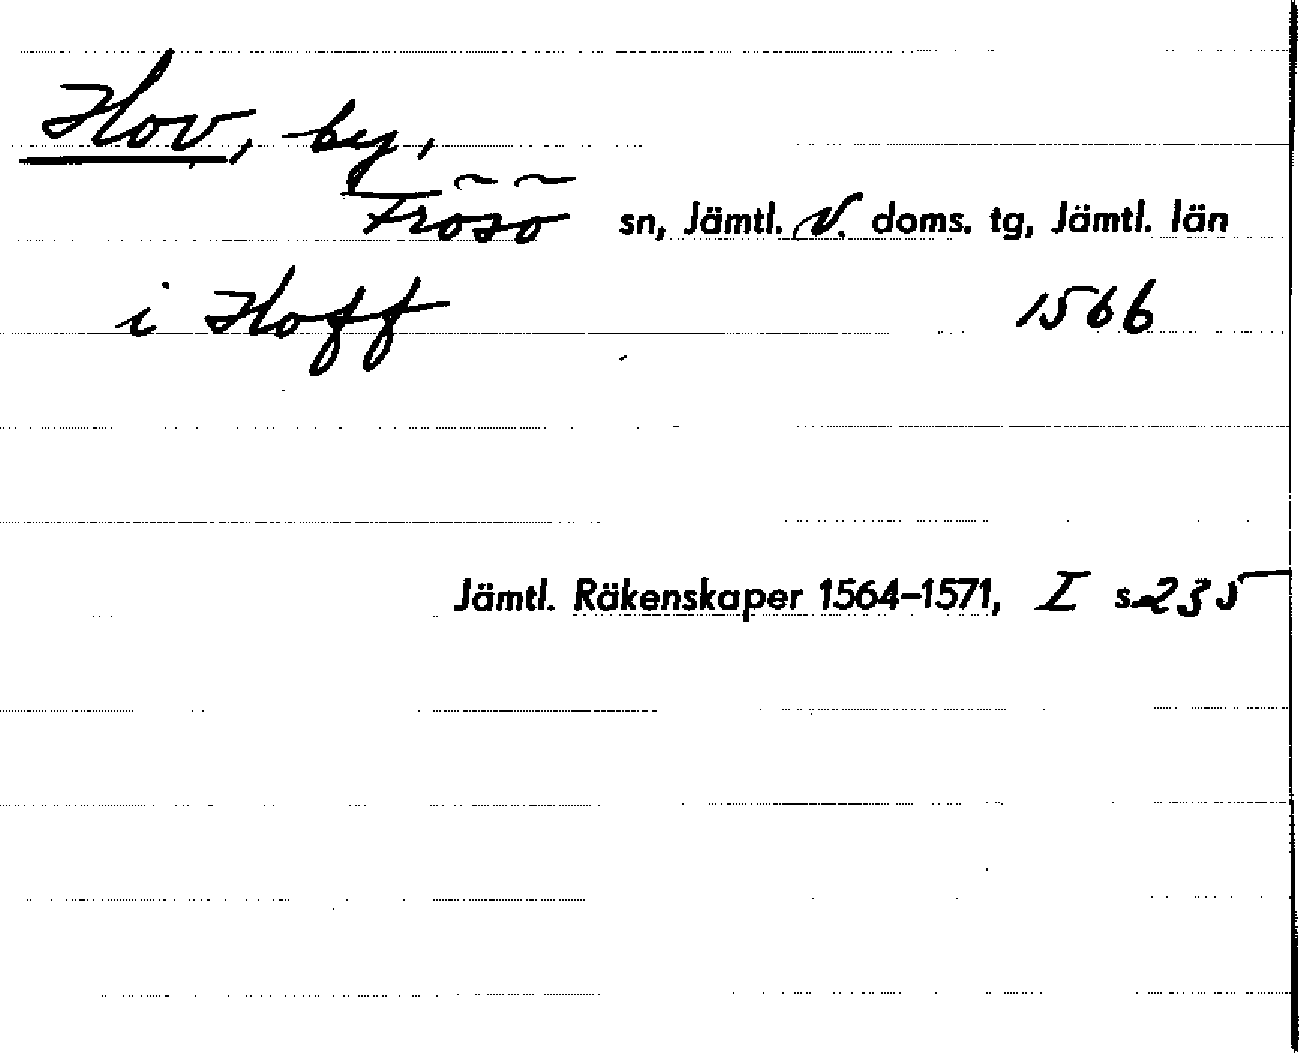 Hov, by,
Frösö sn, Jämtl. N. doms. tg, Jämtl. län
i Hoff 1566
Jämtl. Räkenskaper 1564–1571, I s. 235